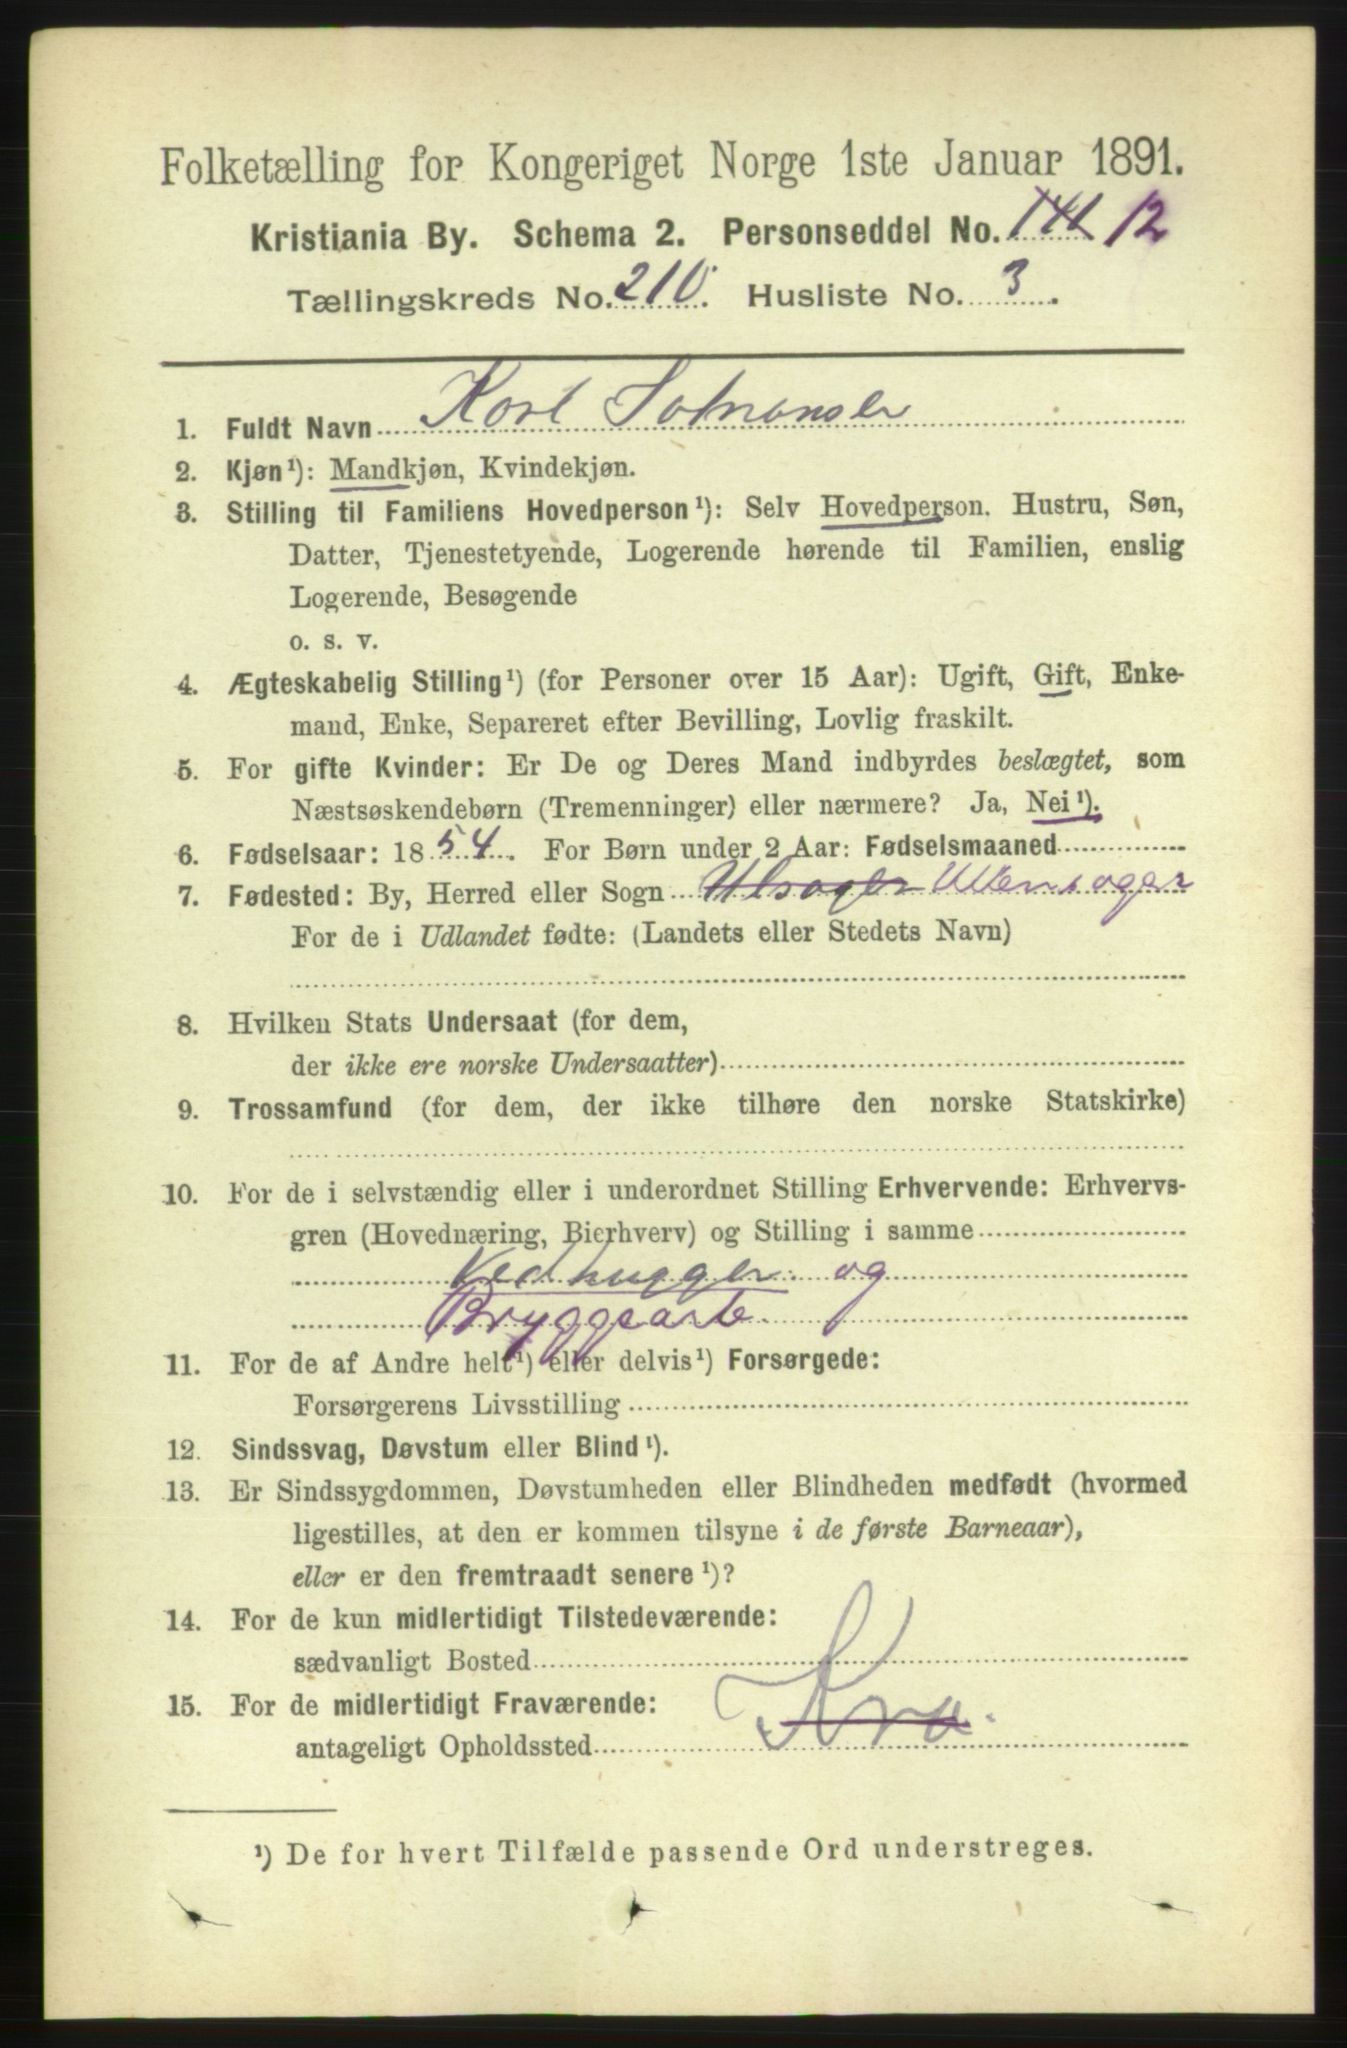 Folketælling for Kongeriget Norge 1ste Januar 1891.
Kristiania By. Schema 2. Personseddel No. 12
Tællingskreds No. 210. Husliste No. 3.
1. Fuldt Navn Karl
2. Kjøn¹): Mandkjøn, Kvindekjøn.
3. Stilling til Familiens Hovedperson¹): Selv Hovedperson. Hustru, Søn,
Datter, Tjenestetyende, Logerende hørende til Familien, enslig
Logerende, Besøgende
o. s. v.
4. Ægteskabelig Stilling¹) (for Personer over 15 Aar): Ugift, Gift, Enke-
mand, Enke, Separeret efter Bevilling, Lovlig fraskilt.
5. For gifte Kvinder: Er De og Deres Mand indbyrdes beslægtet, som
Næstsøskendebørn (Tremenninger) eller nærmere? Ja, Nei¹).
6. Fødselsaar: 1854. For Børn under 2 Aar: Fødselsmaaned
7. Fødested: By, Herred eller Sogn Ulsager Ullensager
For de i Udlandet fødte: (Landets eller Stedets Navn)
8. Hvilken Stats Undersaat (for dem,
der ikke ere norske Undersaatter)
9. Trossamfund (for dem, der ikke tilhøre den norske Statskirke)
10. For de i selvstændig eller i underordnet Stilling Erhvervende: Erhvervs-
gren (Hovednæring, Bierhverv) og Stilling i samme
Vedhugger og
Bryggearb.
11. For de af Andre helt¹) eller delvis¹) Forsørgede:
Forsørgerens Livsstilling
12. Sindssvag, Døvstum eller Blind¹).
13. Er Sindssygdommen, Døvstumheden eller Blindheden medfødt (hvormed
ligestilles, at den er kommen tilsyne i de første Barneaar),
eller er den fremtraadt senere¹)?
14. For de kun midlertidigt Tilstedeværende:
sædvanligt Bosted
15. For de midlertidigt Fraværende:
antageligt Opholdssted Kra.
¹) De for hvert Tilfælde passende Ord understreges.